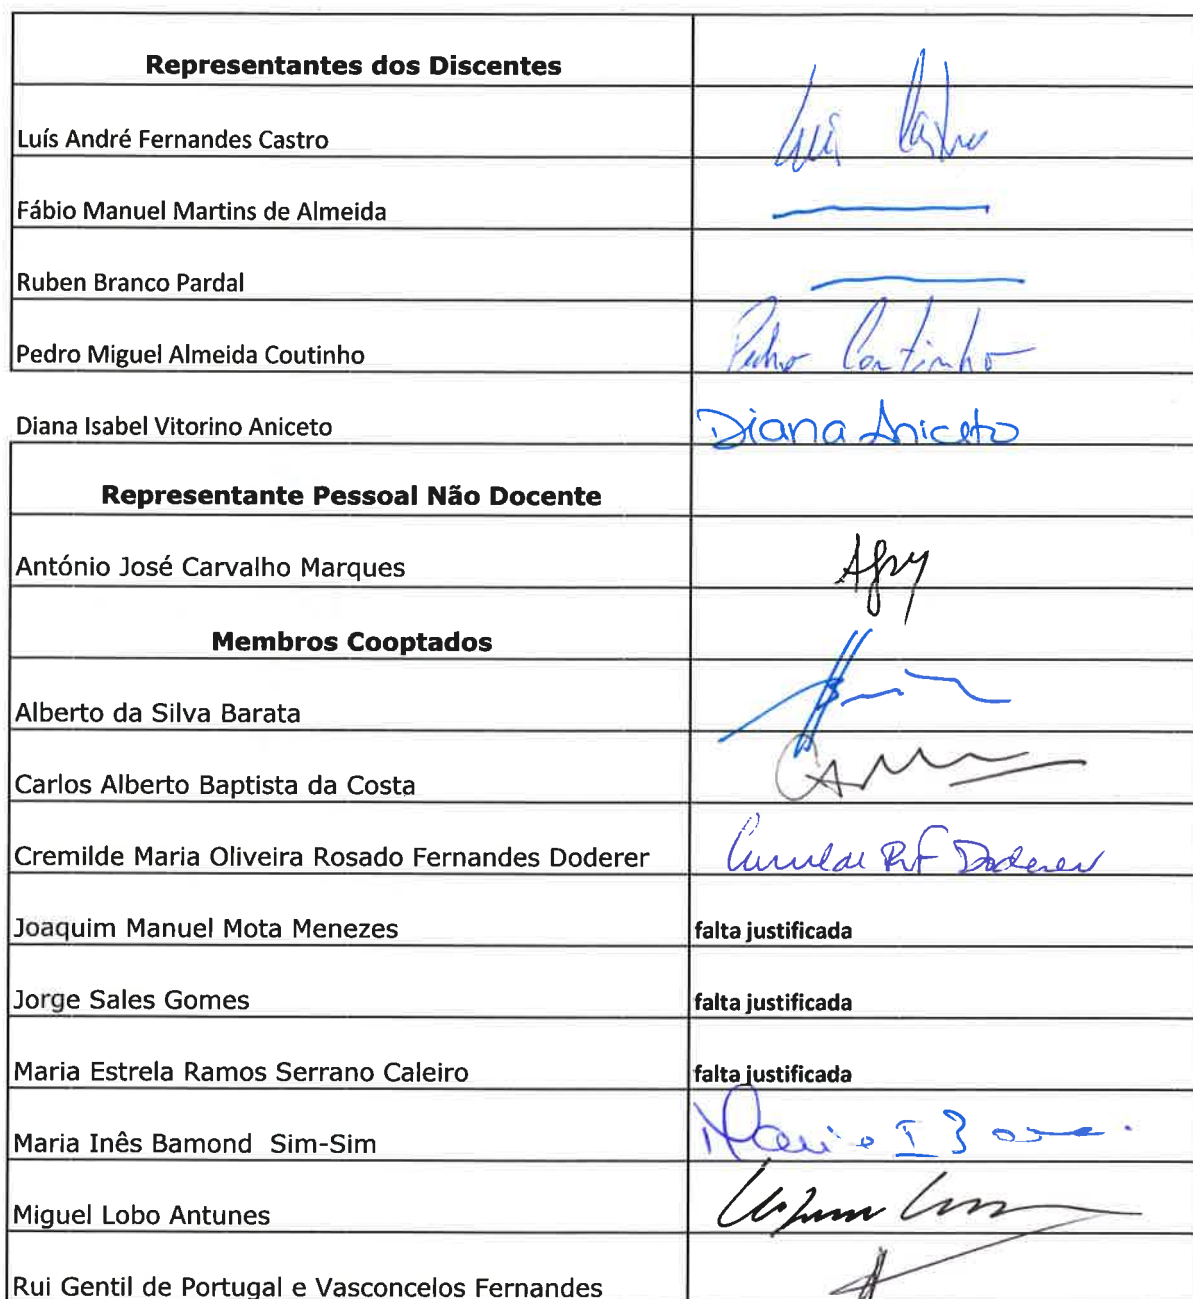 Representantes dos Discentes
Luís André Fernandes Castro Luís Castro
Fábio Manuel Martins de Almeida
Ruben Branco Pardal
Pedro Miguel Almeida Coutinho Pedro Coutinho
Diana Isabel Vitorino Aniceto Diana Aniceto
Representante Pessoal Não Docente
António José Carvalho Marques
Membros Cooptados
Alberto da Silva Barata
Carlos Alberto Baptista da Costa
Cremilde Maria Oliveira Rosado Fernandes Doderer Cremilde RF Doderer
Joaquim Manuel Mota Menezes falta justificada
Jorge Sales Gomes falta justificada
Maria Estrela Ramos Serrano Caleiro falta justificada
Maria Inês Bamond Sim-Sim Maria I
Miguel Lobo Antunes
Rui Gentil de Portugal e Vasconcelos Fernandes